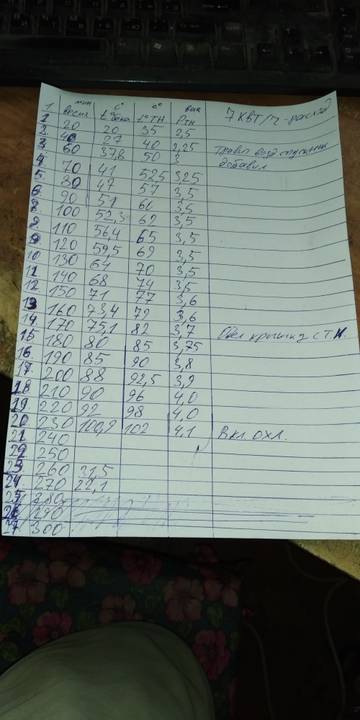 мин с° с° бак 7 квт/т - расход
время t° бака t° ТН РТН
1 20 20 35 2,5
2 40 27 40 2,25
3 60 37,8 50 3
4 70 41 52,5 3,25
5 80 47 57 3,5
6 90 51 61 3,5
8 100 52,3 62 3,5
9 110 56,4 65 3,5
9 120 59,5 69 3,5
10 130 61 70 3,5
11 140 68 74 3,5
12 150 71 77 3,6
13 160 73,4 79 3,6
14 170 75,1 82 3,7
15 180 80 85 3,75
16 190 85 90 3,8
17 200 88 92,5 3,9
18 210 90 96 4,0
19 220 92 98 4,0
20 230 100,9 102 4,1 Вкл. охл.
21 240
250
23 260 31,5
24 270 22,1
25 280
26 290
27 300